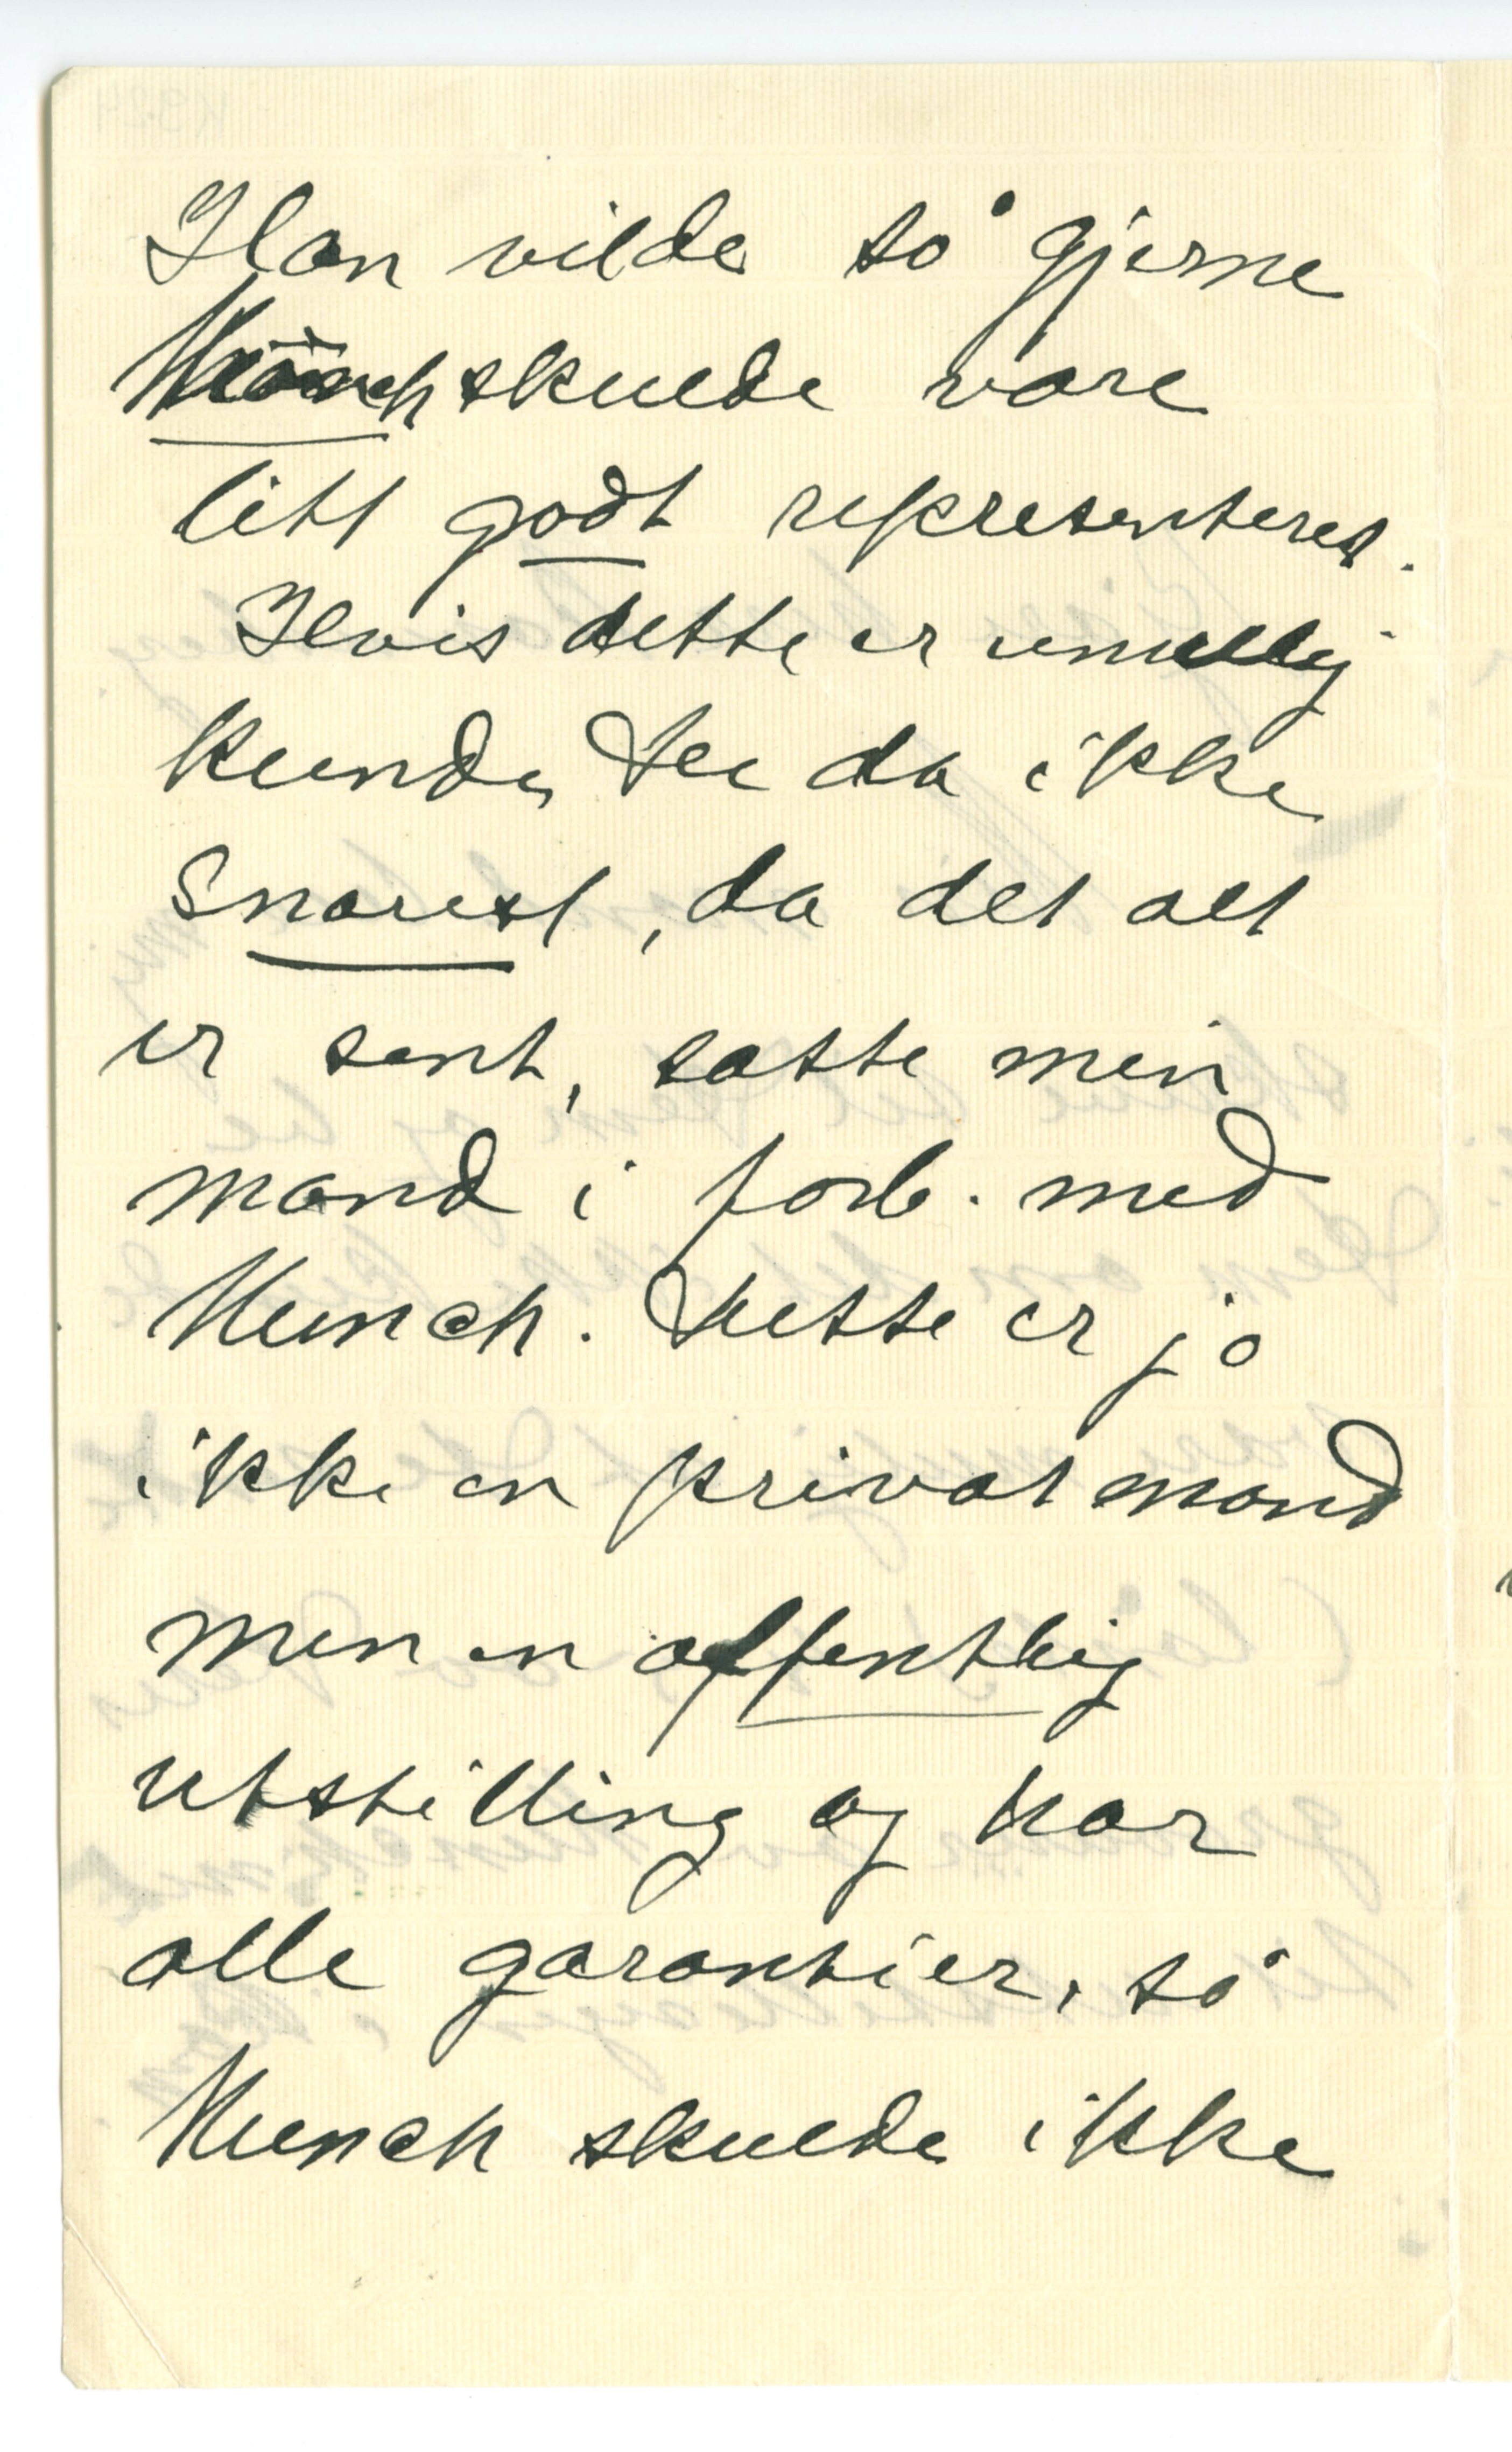 Han vilde så gjerne
Münch skulde være
litt godt representeret.
Hvis dette er umulig
kunde De da ikke
snarest, da det alt
er sent, sætte min
mand i forb. med
Munch. Dette er jo
ikke en privat mand
men en offentlig
utstilling og har
alle garantier, så
Munch skulde ikke